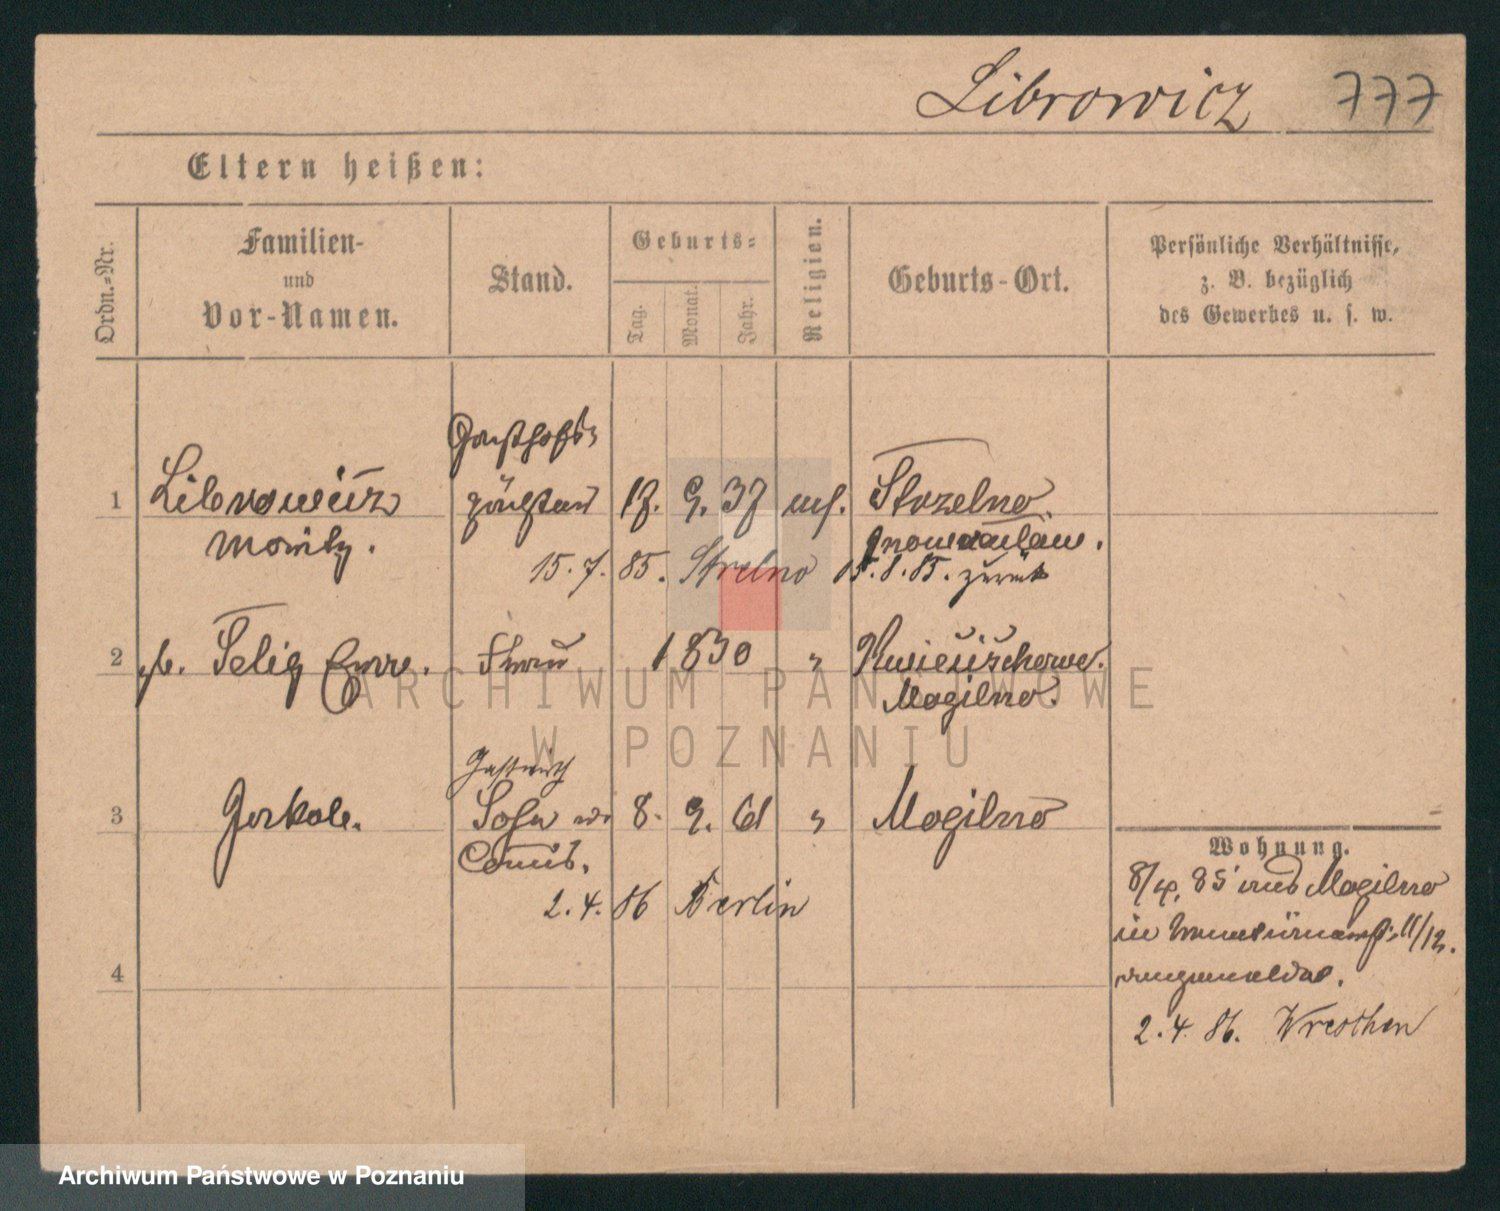 Librowicz 777
Eltern heißen:
Ordn.-Nr.
Familien-
und
Vor-Namen.
Stand.
Geburts-
Tag.
Monat.
Jahr.
Religion.
Geburts-Ort.
Persönliche Verhältnisse,
z. B. bezüglich
des Gewerbes u. s. w.
Gasthofs-
1 Librowicz pächter 17. 9. 37 Strzelno.
Moritz. Inowrazlaw.
15. 7. 85. Strelno 15. 8. 85. zurück
2 Selig Frau 1830 "
Mogilno.
Gastwirth
3 Jakob. Sohn 8. 9. 61 " Mogilno
Commis.
2. 4. 86 Berlin
4
Wohnung.
8/4. 85 aus Mogilno
in 11/12.
angemeldet.
2. 4. 86. Wreschen
ARCHIWUM PAŃSTWOWE
W POZNANIU
Archiwum Państwowe w Poznaniu